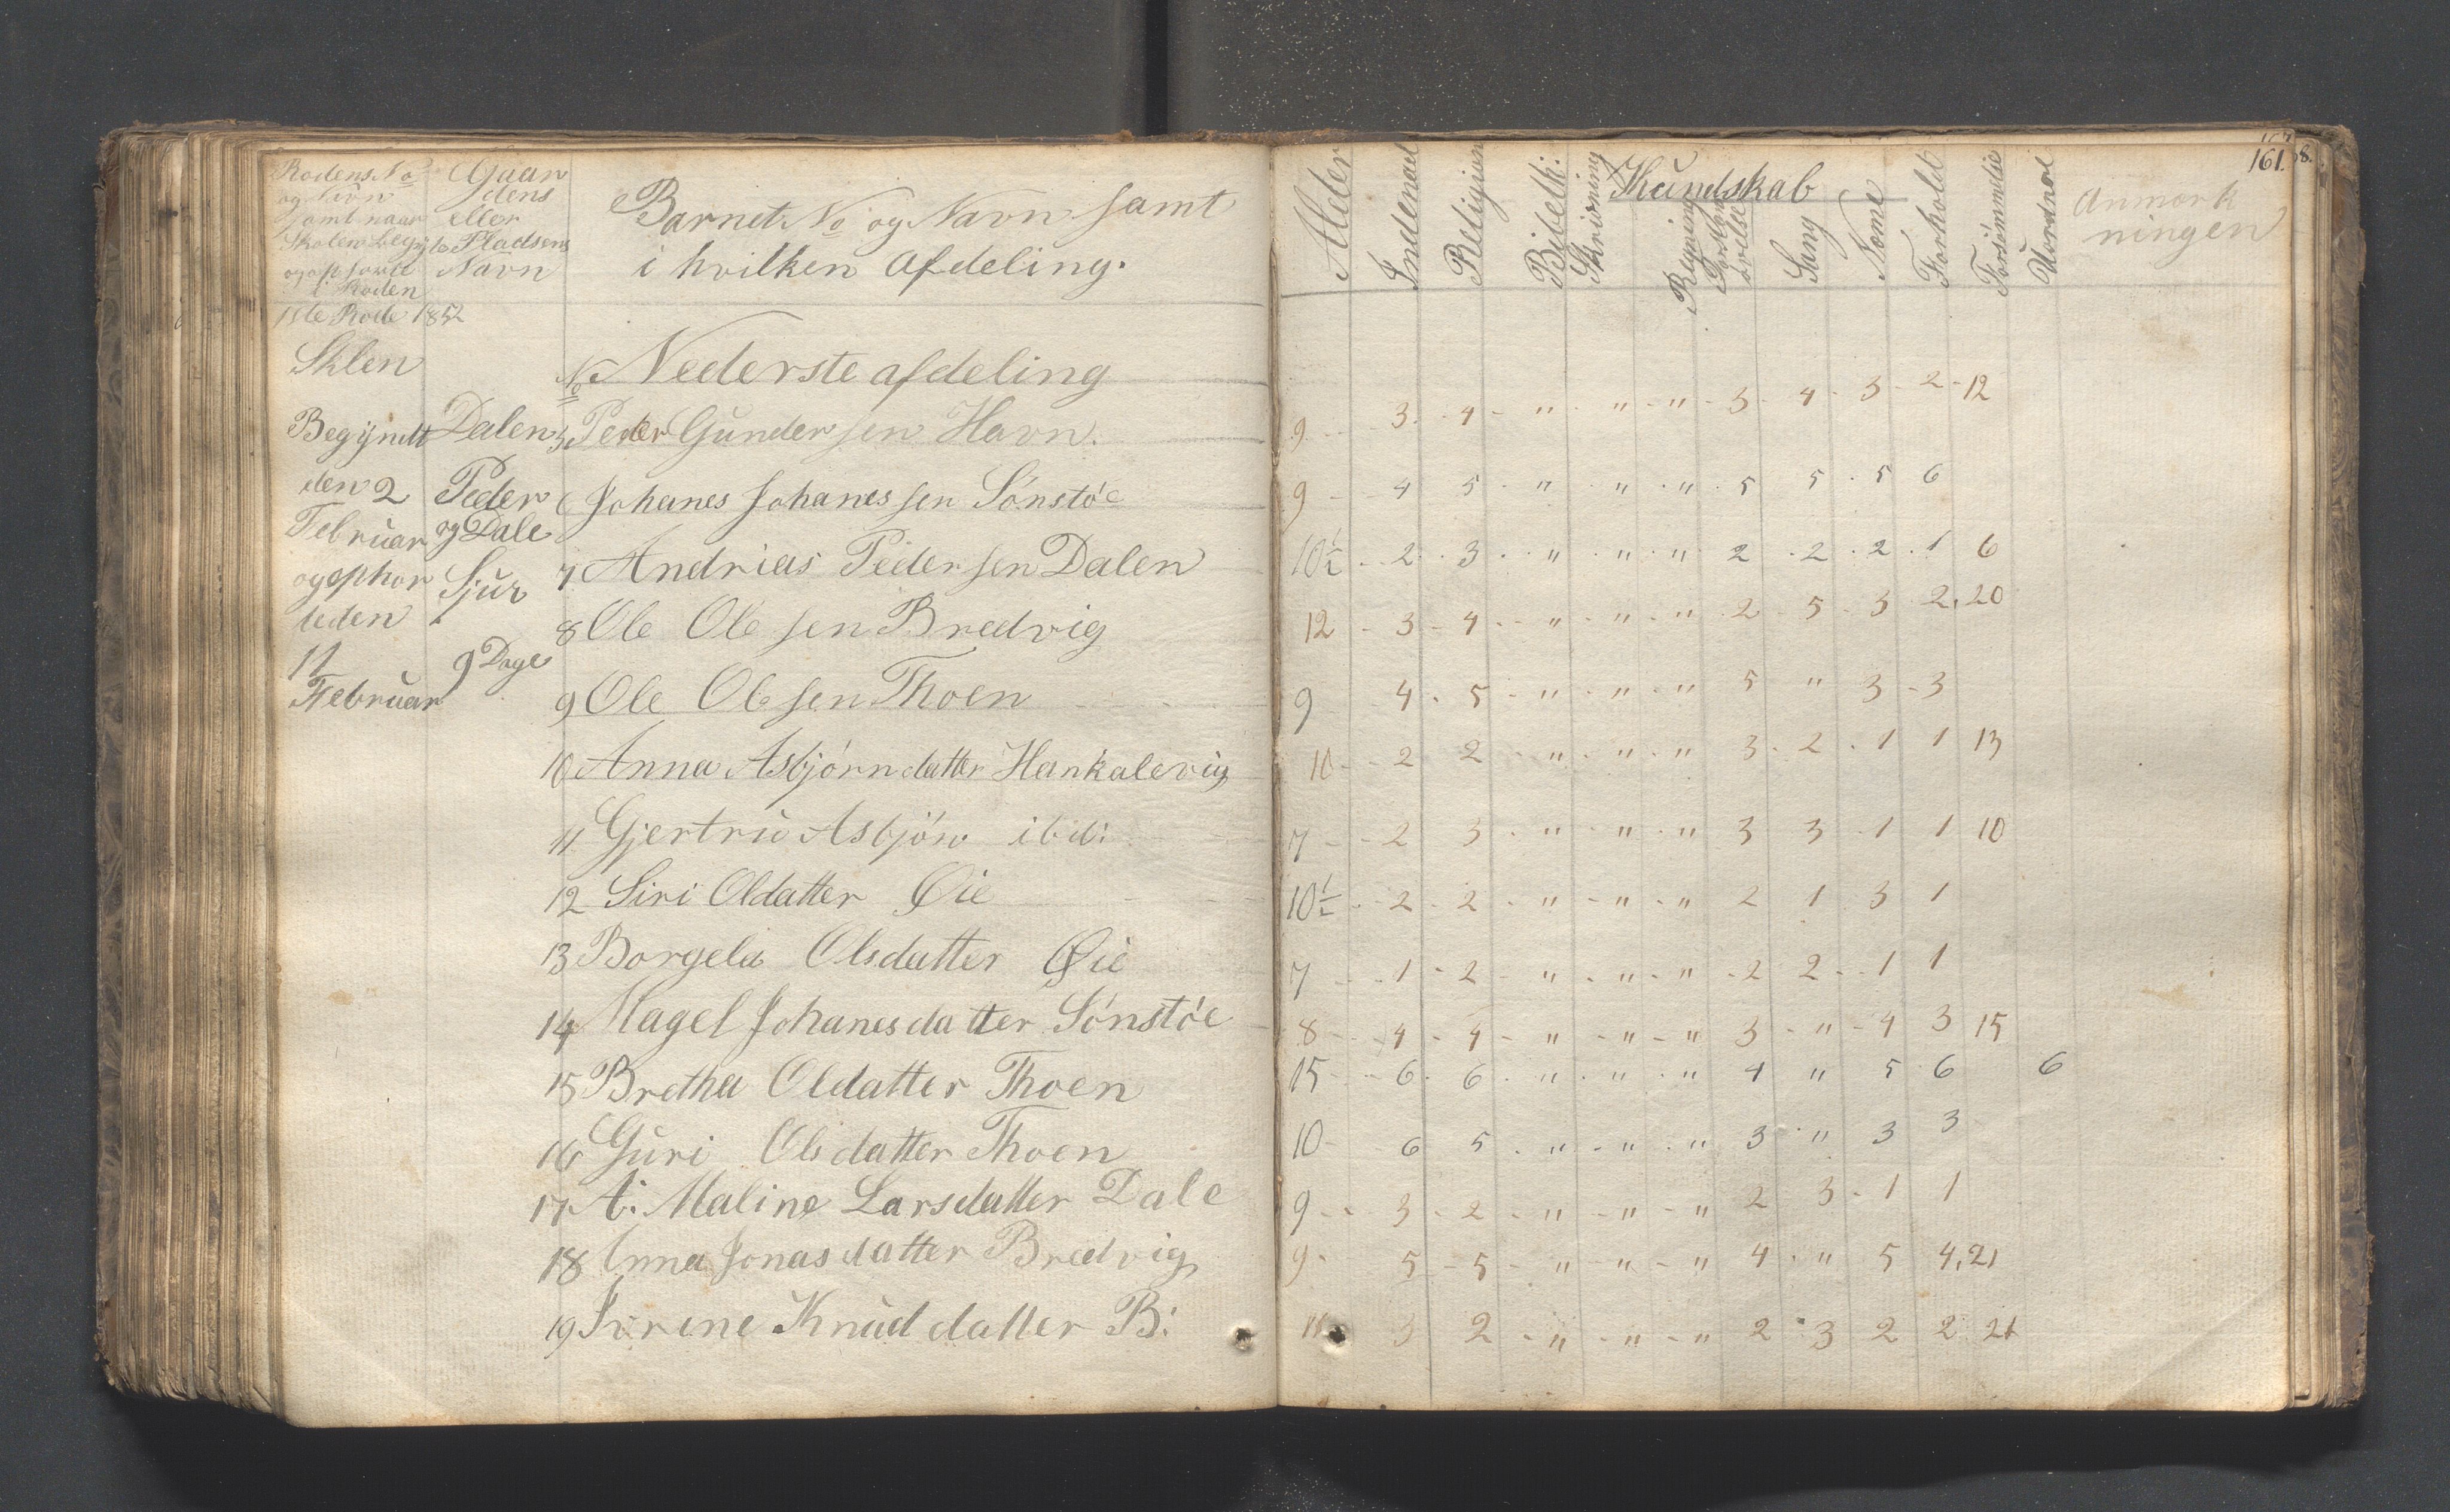 Rodens No Gaar
og Navn dens
samt naar eller
Skolen begynte Pladsens
og ophørte Navn
i Roden
Barnets No og Navn samt
i hvilken Afdeling.
1ste Rode 1852
Sklen
No Nederste afdeling
Begyndt Dalen 5 Peder Gundersen Havn.
den 2 Peder 6 Johanes Johanessen Sönstöe
Februar og Dale
og ophor Sjur 7 Andrias Pedersen Dalen
teden 8 Ole Olesen Bredvig
11 9 Dage
Februar 9 Ole Olesen Thoen
10 Anna Asbjörndatter Hankalevig
11 Gjertru Asbjön ibid:
12 Siri Oldatter Øie
13 Borgela Olsdatter Øie
14 Magel Johanesdatter Sönstöe
15 Bretha Oldatter Thoen
16 Guri Olsdatter Thoen
17 A: Maline Larsdatter Dale
18 Anna Jonasdatter Bredvig
19 Ivrine Knuddatter B:
161.
Kundskab
Alder Indenad Religion Bibelhi: Skrivning Regning Forstandsøvelse Sang Næme Forhold Forsömmelse Uordnal Anmærk
ningen
9 - 3 - 4 - " - " - " - 3 - 4 - 3 - 2 - 12
9 - 4 5 - " - " - " - 5 5 - 5 6
10½ - 2 - 3 - " - " - " 2 - 2 - 2 - 1 6
12 - 3 - 4 - " - " - " 2 - 5 - 3 2. 20
9 4 - 5 - " - " - " 5 " 3 - 3
10 - 2 2 - " - " - " 3 - 2 - 1 1 13
7 - 2 3 - " - " - " 3 3 - 1 1 10
10½ - 2 - 2 - " - " - " 2 1 3 1
7 - 1 - 2 - " - " - " - 2 2 - 1 1
8 - 4 - 4 - " - " - " 3 - " - 4 3 15
15 - 6 - 6 - " - " - " 4 " 5 6 6
10 - 6 5 - " - " - " 3 - " 3 3
9 - 3 - 2 - " - " - " 2 3 - 1 1
9 - 5 - 5 - " - " - " 4 - " 5 4. 21
11 3 2 - " - " - " 2 - 3 2 2 21